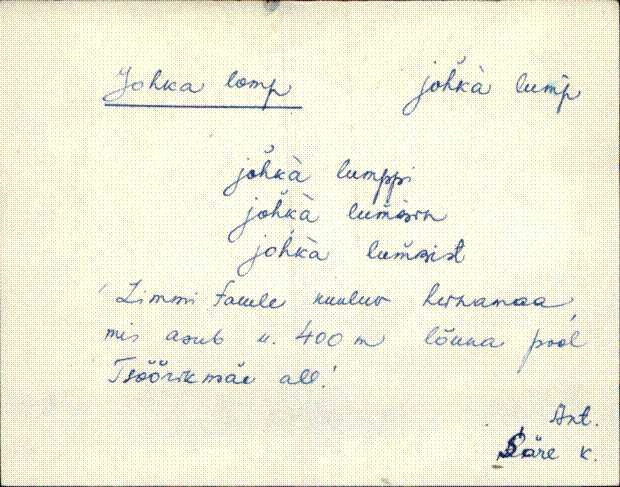 Johka lomp
jo̊hkà lum̆p
jo̊hkà lumppi
jo̊hkà
jo̊hkà
Limmi talule kuuluv heinamaa,
mis asub u. 400 m lõuna pool
Tsõõrikmäe all!
Ant.
Säre k.